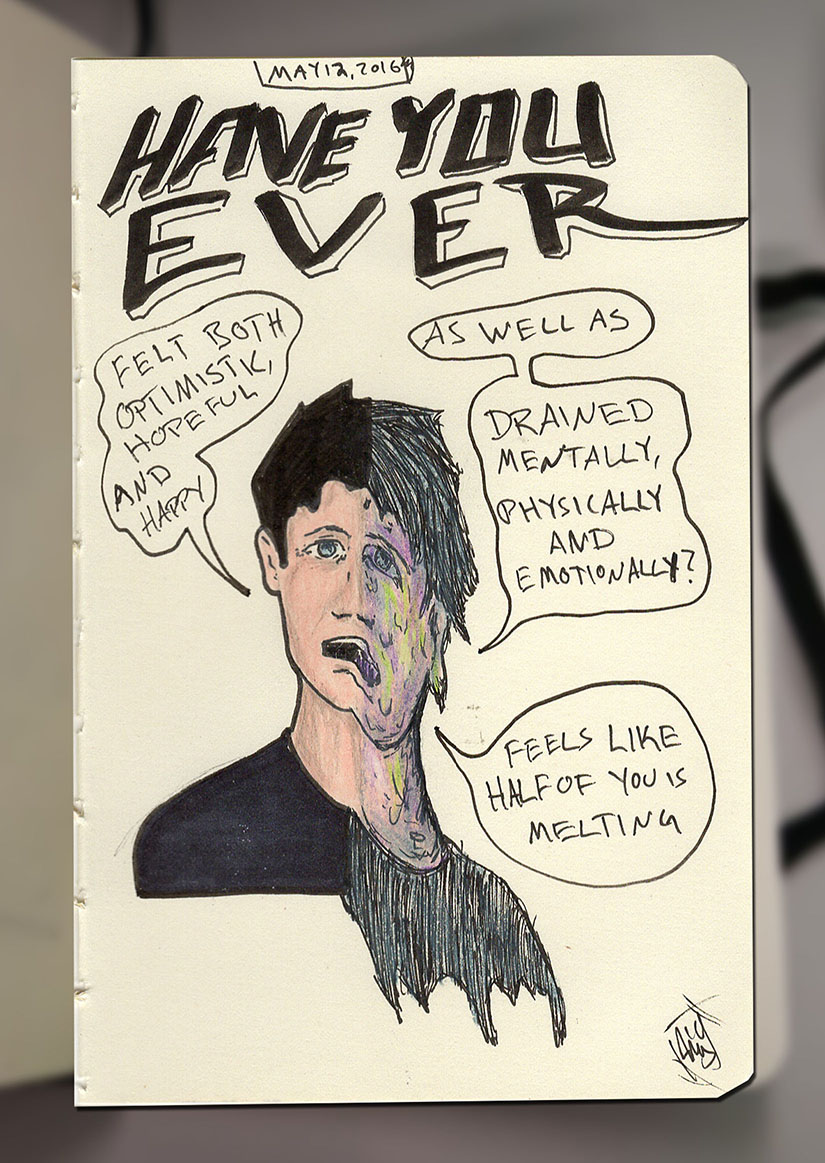 MAY 12, 2016
HAVE YOU
EVER
FELT BOTH
OPTIMISTIC,
HOPEFUL
AND
HAPPY
AS WELL AS
DRAINED
MENTALLY,
PHYSICALLY
AND
EMOTIONALLY?
FEELS LIKE
HALF OF YOU IS
MELTING